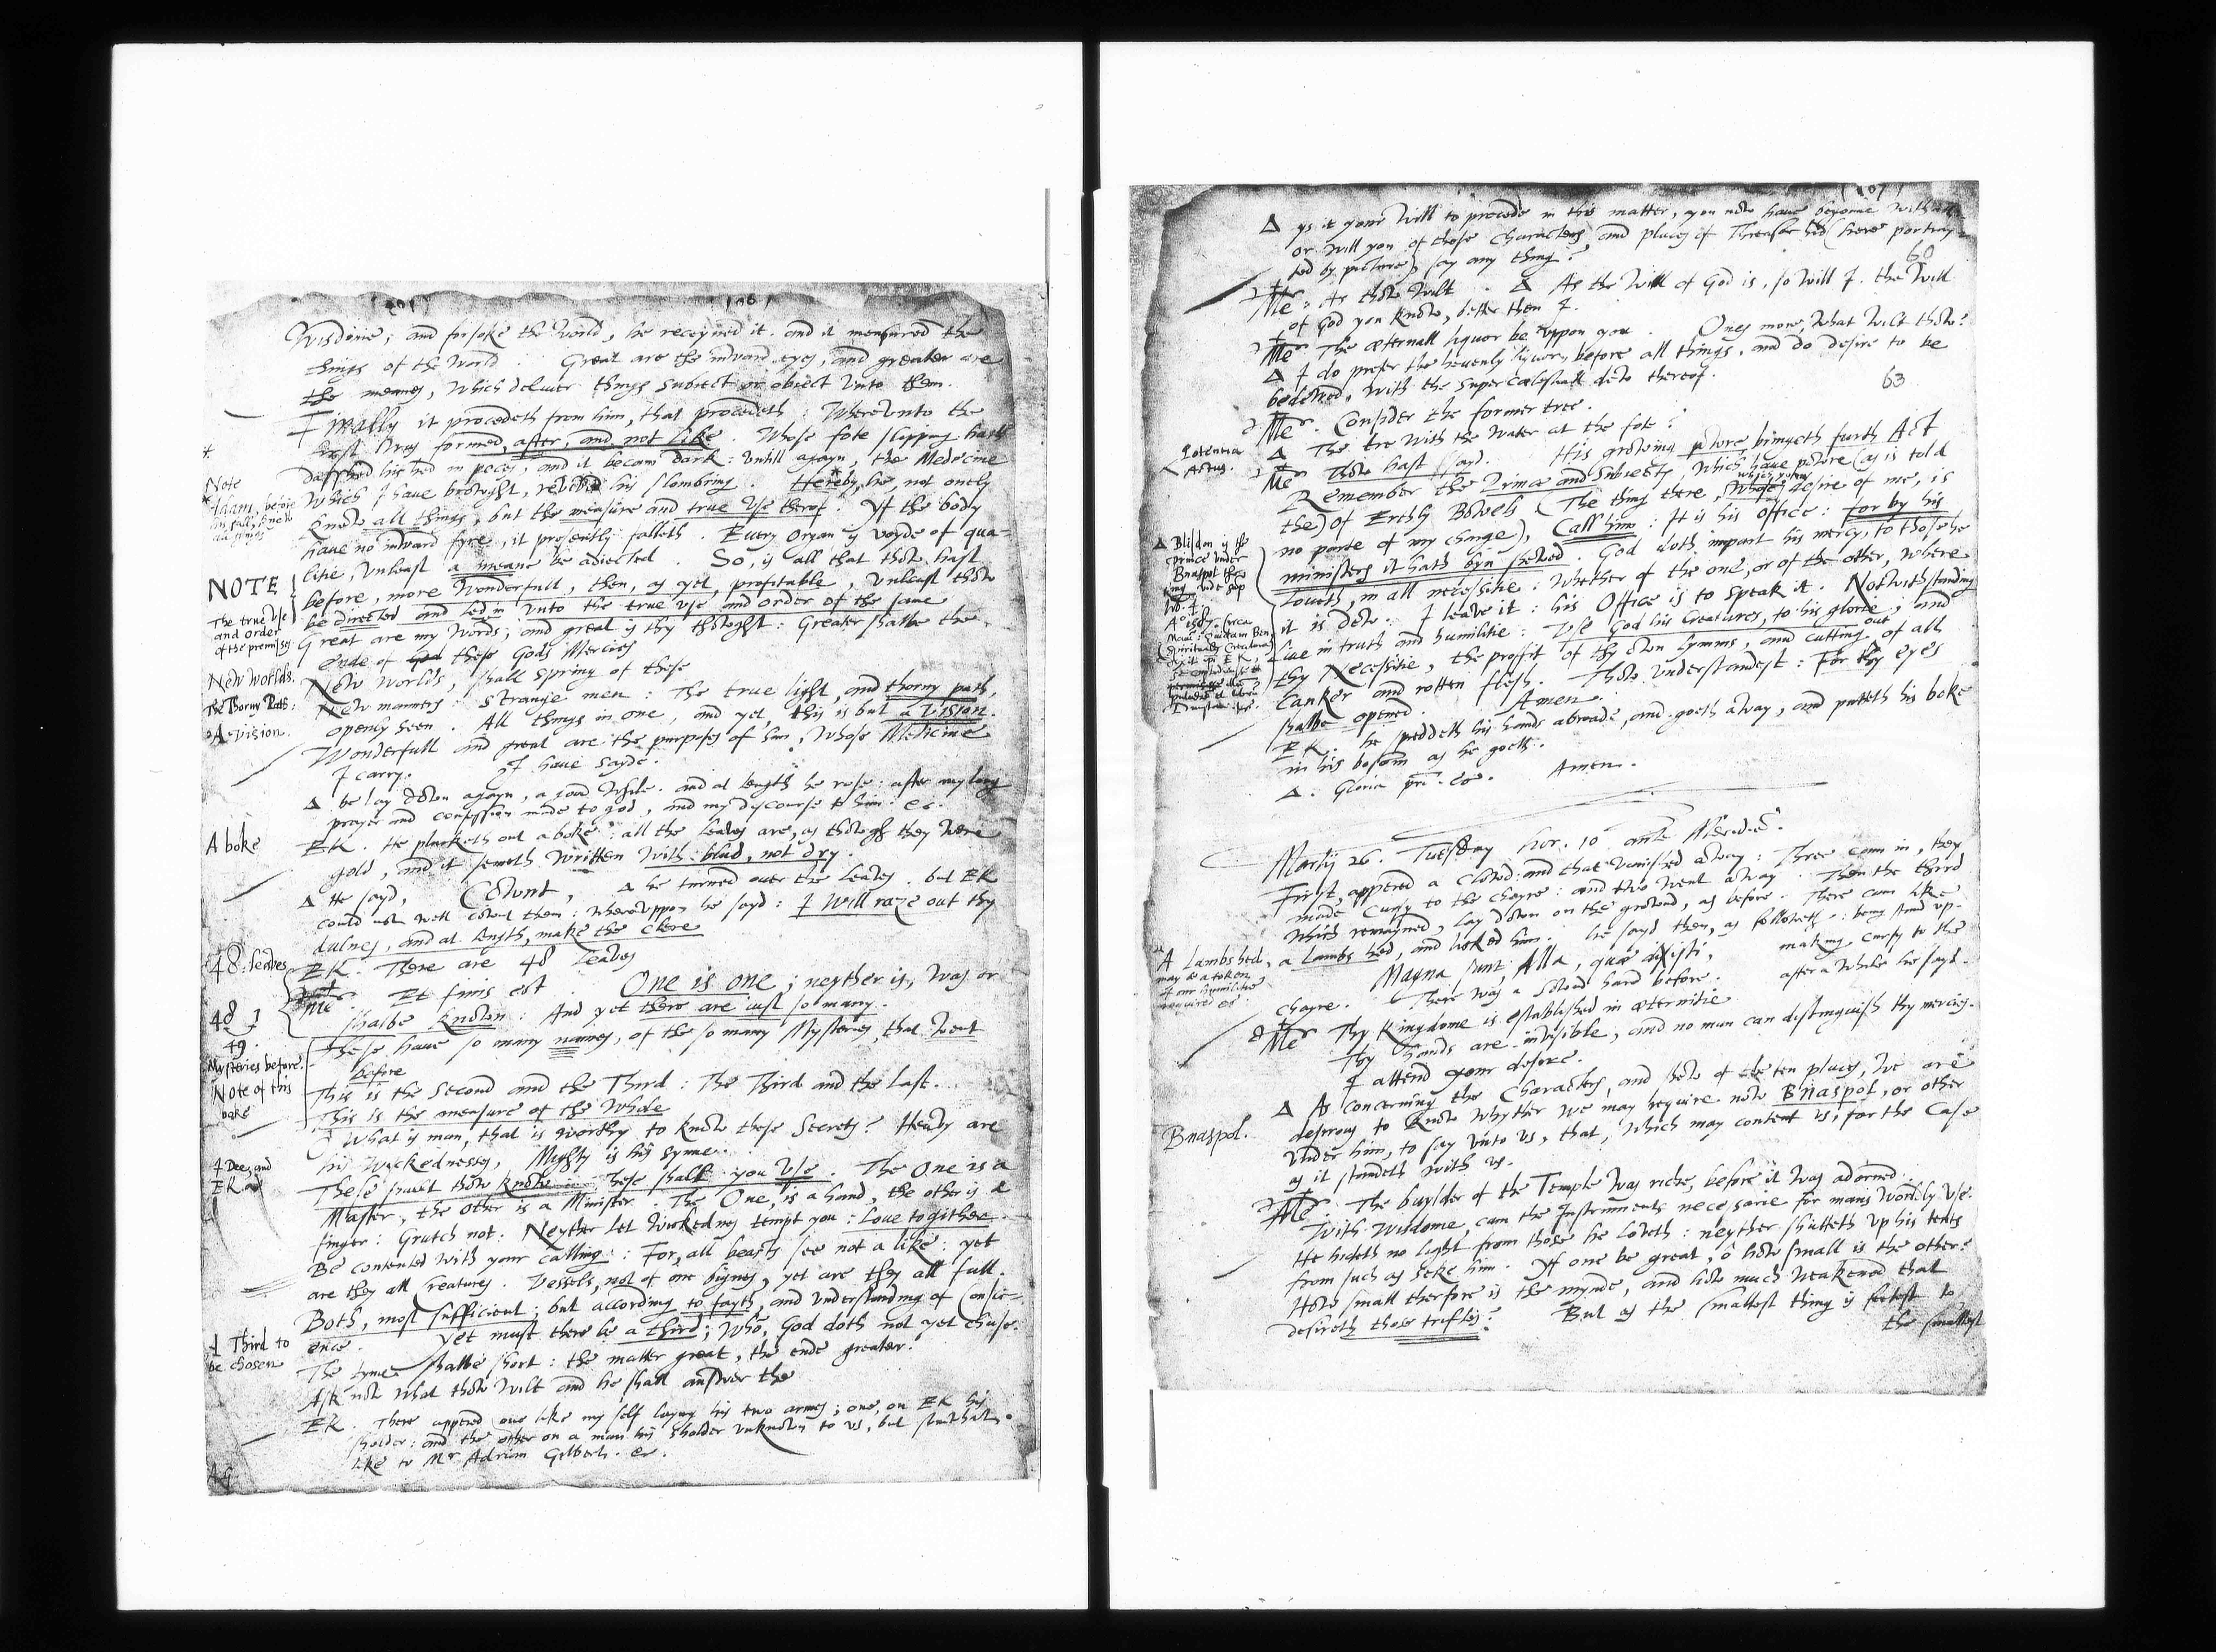 Wisdome; and forsoke the World, he receyved it. and it measured the
things of the World Great are the inward eyes, and greater are
the meanes, which deliver things subiect or obiect unto them.
Finally it procedeth from him, that procedeth: Wherevnto the
first was formed, after, and not like. Whose fote slipping hath
dasshed his hed in peces, and it becam dark: untill agayn, the Medecine
Note
which I have browght, revived his slombring. Hereby, he not onely
* Adam, before
his fall, knew
all things
knew all things, but the measure and true use therof. Yf the body
have no inward fyre, it presently falleth. Every organ is voyde of qua-
litie, vnleast a meane be adiected. So, is all that thow hast
NOTE
before, more wonderfull, then, as yet, profitable, vnleast thow
The true use
and order
of the premisses
be directed and led in vnto the true vse and order of the same
Great are my words; and great is thy thowght: Greater shalbe the
ende of these Gods Mercies
New worlds.
New Worlds, shall spring of these
The Thorny Path:
New manners: Strange men: The true light, and thorny path,
openly seen. All things in one, and yet, this is but a vision.
A vision.
Wonderfull and great are the purposes of him, whose Medicine
I carry. I have sayde.
Δ he lay down agayn, a good while. and at length he rose: after my long
prayer and confession made to god, and my discourse to him: &c.
A boke
EK. He plucketh out a boke: all the leaves are, as thowgh they were
gold, and it semeth written with blud, not dry.
Δ He sayd, Cownt, Δ he turned over the leaves. but EK
could not well cownt them: wherevppon he sayd: I will raze out thy
dulnes, and at length, make the clere
48. leaves
EK. There are 48 leaves
Me Et finis est. One is one; neyther is, was or
48 1
49
shalbe knowen: And yet there are iust so many.
Mysteries before.
These have so many names, of the so many Mysteries, that went
before
Note of this
boke
This is the Second and the Third: The Third and the Last.
This is the measure of the Whole
O what is man, that is worthy to know these Secrets? Heavy are
his wickednesses, Mighty is his synne.
J Dee, and
EK
These shalt thow know: These shall you vse. The One is a
Master, the other is a Minister. The One, is a hand, the other is a
finger: Grutch not. Neyther let wickednes tempt you: Love togither.
Be contented with your calling: For, all beasts see not a like: yet
are they all Creatures. Vessels, not of one bignes, yet are they all full.
Both, most sufficient; but according to fayth, and vnderstanding of Consci-
A Third to
be chosen
ence. Yet must there be a third; Who, God doth not yet chuse.
The tyme shalbe short: the matter great, the ende greater:
Ask now what thow wilt and he shall answer the
EK. There appered one like my self laying his two armes; one, on EK his
sholder: and the other on a man his sholder vnknown to vs, but somwhat
like to Mr Adrian Gilbert. &c.
107
Δ ys it your will to procede in this matter, you now have begonne withall:
or will you of those Characters, and places of Threasor hid (here portray-
ted by picture) say any thing?
60
Me: As thow wilt. Δ As the Will of God is, so will I. the Will
of God you know, better then I.
Me The æternall liquor be vppon you. Ones more, what wilt thow?
Δ I do prefer the hevenly liquor, before all things, and do desire to be
bedewed, with the supercælestiall dew therof.
63
Me. Consider the former tree.
Δ The tre with the water at the fote?
Potentia
Actus.
Me Thow hast sayd. His growing powre bringeth furth Act
Remember the Prince and Subiects, which have powre (as is told
the) of Erthly Bowels (The thing there, which you desire of me, is
no parte of my charge), Call him: It is his office: for by his
Δ Blisdon is the
prince vnder
Bnaspol the
king
ministers it hath byn shewed. God doth impart his mercy, to those he
loveth, in all necessitie: Whether of the one, or of the other, where
it is dew. I leave it: his Office is to speak it. Notwithstanding
Live in truth and humilitie: Vse God his Creatures, to his glorie, and
thy Necessitie, the proffit of thy own lymms, and cutting out of all
Canker and rotten flesh. Thow vnderstandest: For thy eyes
shalbe opened. Amen.
EK. he spreddeth his hands abroade, and goeth away, and putteth his boke
in his bosom as he goeth.
Δ. Gloria pri. &c. Amen.
Martij 26. Tuesday hor. 10 ante Merid.
First, appered a clowd: and that vanished away: Three cam in, they
made Cursy to the chayre: and two went away. Then the third
which remayned, lay down on the grownd, as before. There cam like
A Lambs hed,
may be a token
of our humilitie
required &c
a Lambs hed, and licked him. he sayd then, as followeth: being stand vp
Magna sunt Alla, quæ dixisti, making cursy to the
chayre. There was a Clowd hard before. after a while he sayd.
Me Thy Kingdome is established in æternitie
Thy hands are invisible, and no man can distinguish thy mercies.
I attend your desire.
Δ As concerning the Characters, and shew of the ten places, we are
Bnaspol.
desirous to know whyther we may require now Bnaspol, or other
vnder him, to say vnto vs, that, which may content vs, for the Case
as it standeth with vs.
Me. The buylder of the Temple was riche, before it was adorned.
With Wisdome, cam the Instruments necessarie for mans worldly vse.
He hideth no light from those he loveth: neyther shutteth vp his tents
from such as seke him. Yf one be great, o how small is the other?
How small therfore is the mynde, and how much weakened that
desireth those trifles? But as the smallest thing is fettest to
the smallest